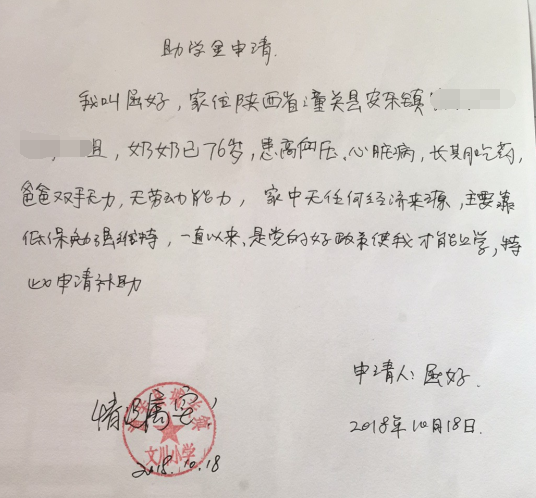 助学金申请.
我叫屈好，家住陕西省潼关县安乐镇
组，奶奶已76岁，患高血压、心脏病，长期吃药，
爸爸双手无力，无劳动能力，家中无任何经济来源，主要靠
低保勉强维持，一直以来，是党的好政策使我才能上学，特
此申请补助
申请人：屈好.
情况属实！
2018年10月18日.
文川小学
2018.10.18